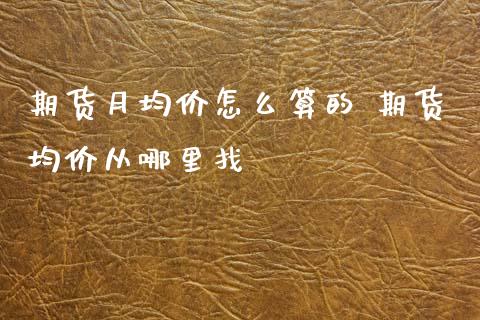 期货月均价怎么算的 期货
均价从哪里找